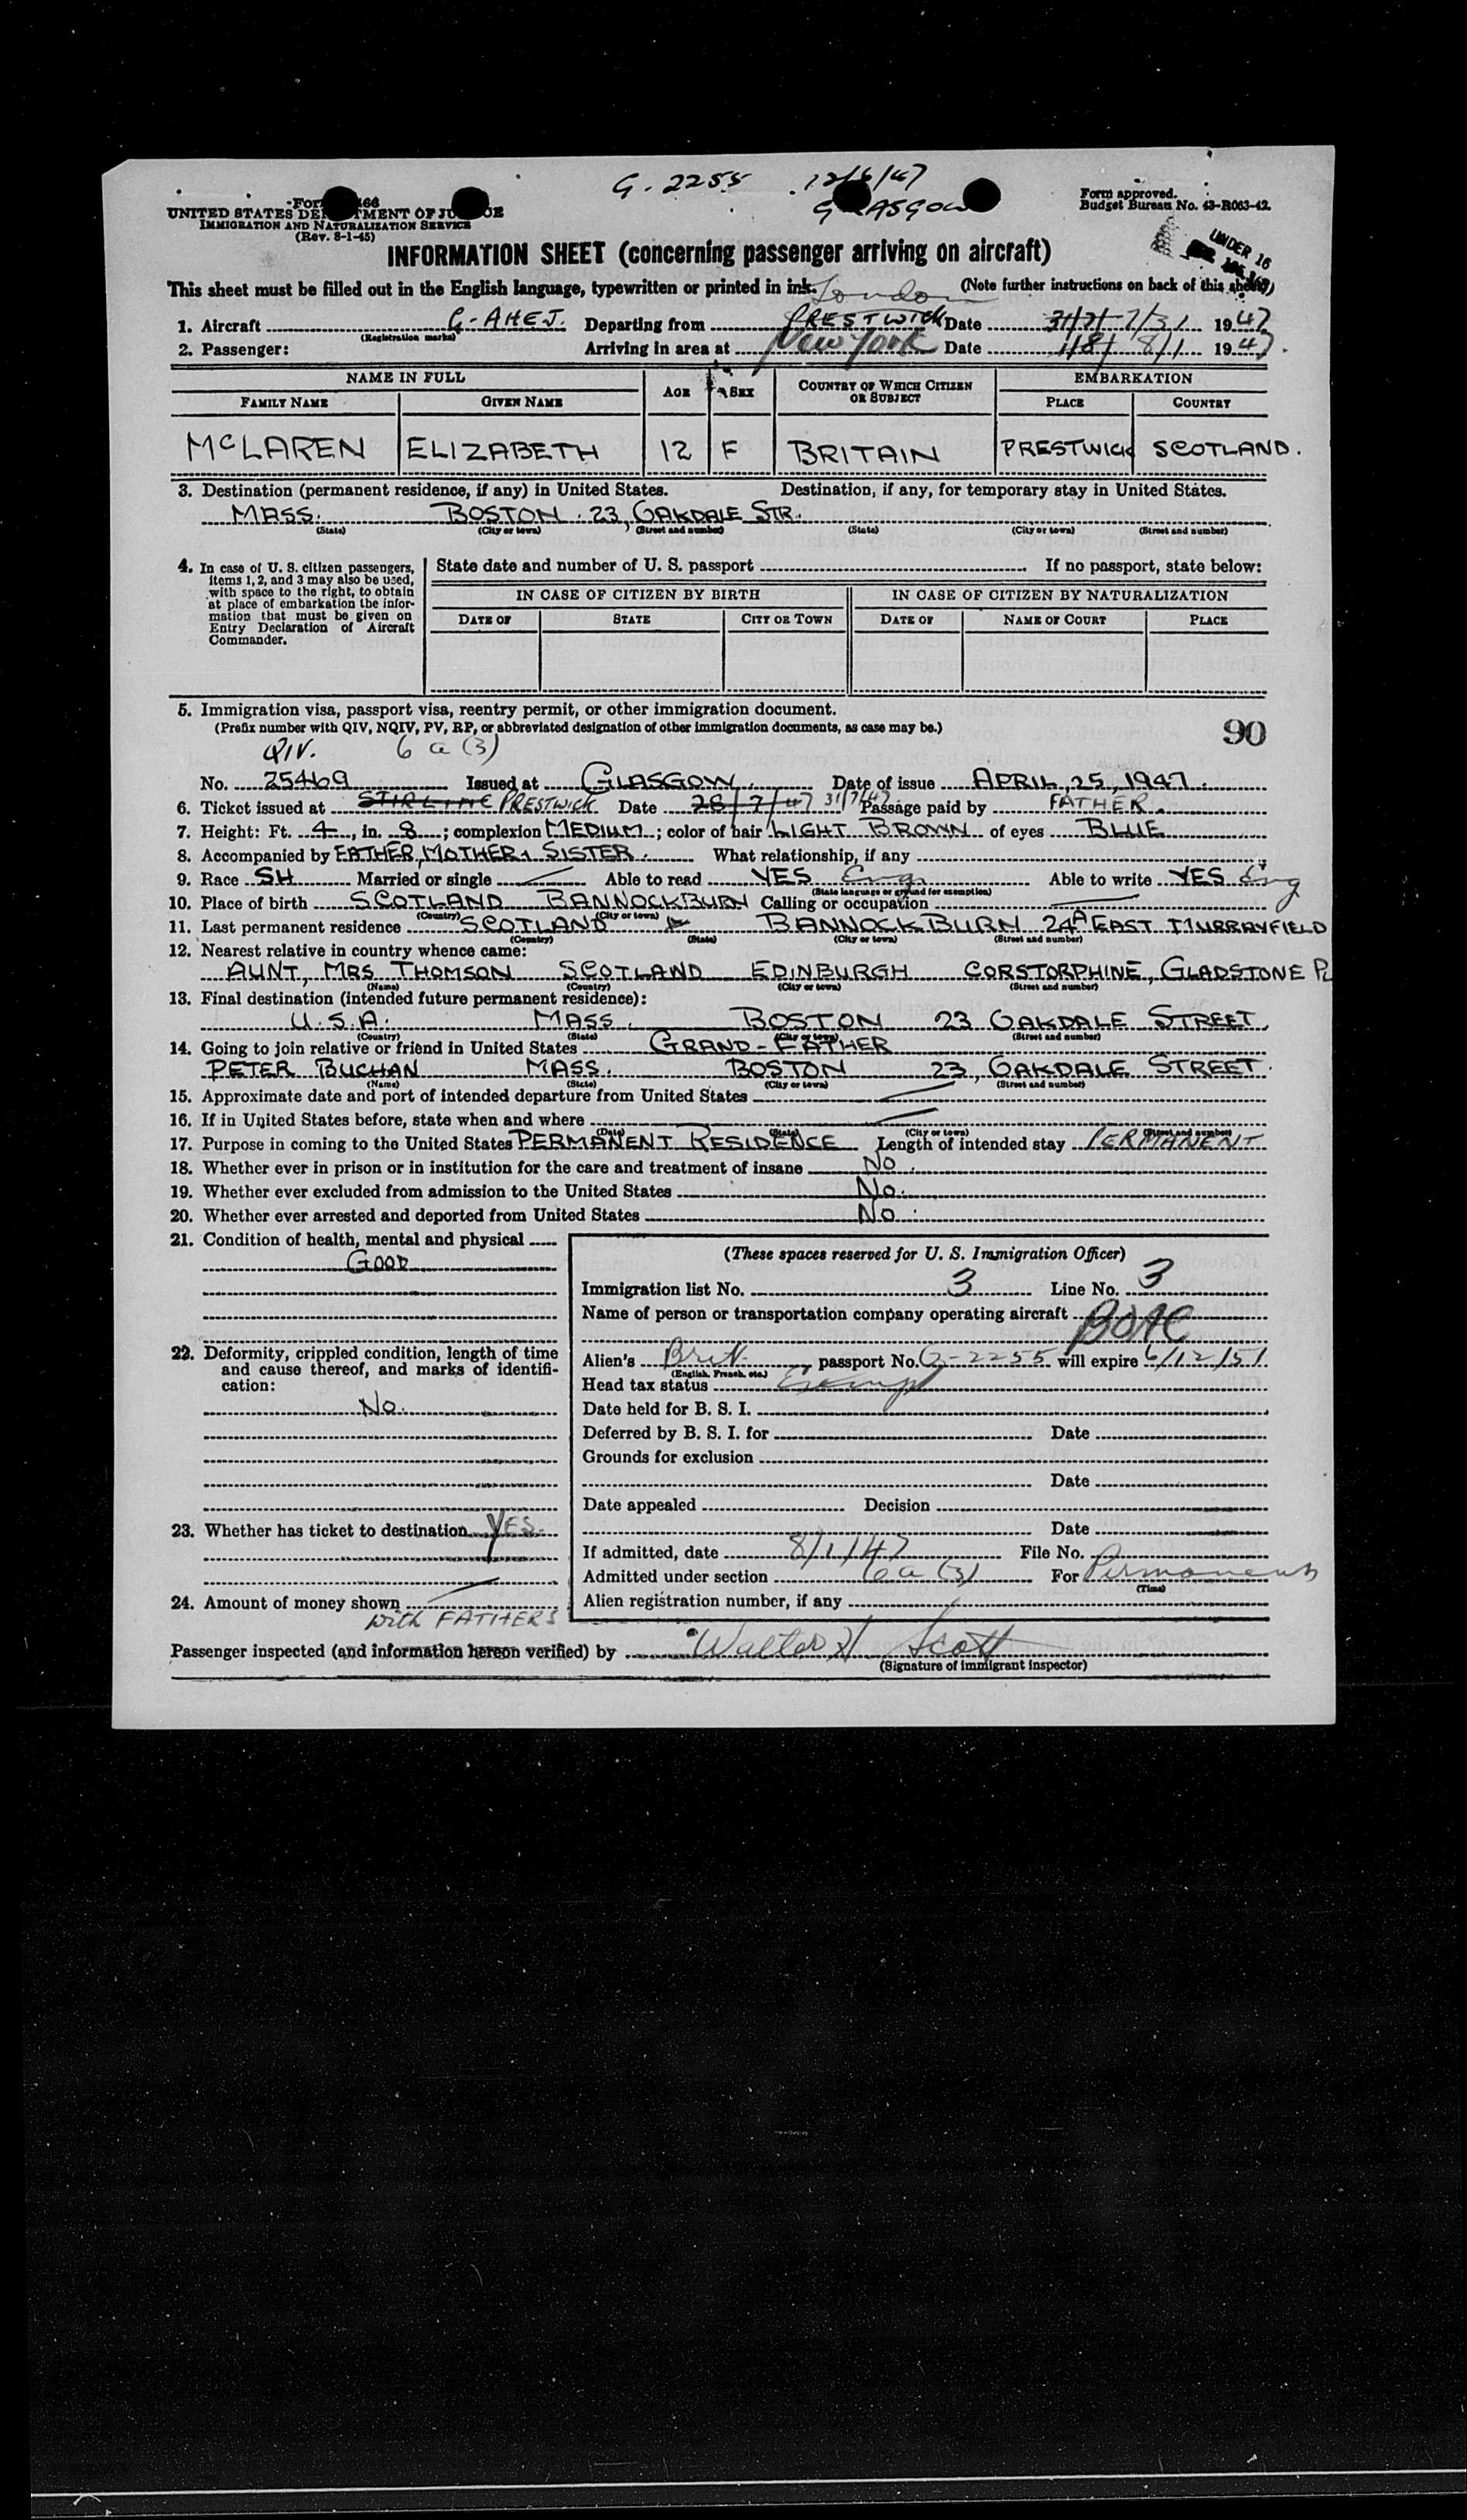 G. 2255 12/6/47
GLASGOW
Form approved.
Budget Bureau No. 43-R063-42.
UNITED STATES DEPARTMENT OF JUSTICE
IMMIGRATION AND NATURALIZATION SERVICE
(Rev. 8-1-45)
UNDER 16
INFORMATION SHEET (concerning passenger arriving on aircraft)
This sheet must be filled out in the English language, typewritten or printed in ink. (Note further instructions on back of this sheet)
London
1. Aircraft G-AHEJ. Departing from PRESTWICK Date 31/7/ 7/31 1947
(Registration marks)
2. Passenger: Arriving in area at New York Date 1/8/ 8/1 1947.
NAME IN FULL AGE SEX COUNTRY OF WHICH CITIZEN OR SUBJECT EMBARKATION
FAMILY NAME GIVEN NAME PLACE COUNTRY
McLAREN ELIZABETH 12 F BRITAIN PRESTWICK SCOTLAND.
3. Destination (permanent residence, if any) in United States. Destination, if any, for temporary stay in United States.
MASS. BOSTON. 23, OAKDALE STR.
(State) (City or town) (Street and number) (State) (City or town) (Street and number)
4. In case of U. S. citizen passengers, items 1, 2, and 3 may also be used, with space to the right, to obtain at place of embarkation the information that must be given on Entry Declaration of Aircraft Commander.
State date and number of U. S. passport If no passport, state below:
IN CASE OF CITIZEN BY BIRTH IN CASE OF CITIZEN BY NATURALIZATION
DATE OF STATE CITY OR TOWN DATE OF NAME OF COURT PLACE
5. Immigration visa, passport visa, reentry permit, or other immigration document.
(Prefix number with QIV, NQIV, PV, RP, or abbreviated designation of other immigration documents, as case may be.)
90
QIV. 6 a (3)
No. 25469 Issued at GLASGOW. Date of issue APRIL, 25, 1947.
6. Ticket issued at STIRLING PRESTWICK Date 28/7/47 31/7/47 Passage paid by FATHER.
7. Height: Ft. 4, in. 8; complexion MEDIUM; color of hair LIGHT BROWN of eyes BLUE
8. Accompanied by FATHER, MOTHER & SISTER. What relationship, if any
9. Race SH Married or single Able to read YES Eng Able to write YES Eng
(State language or ground for exemption)
10. Place of birth SCOTLAND BANNOCKBURN Calling or occupation
(Country) (City or town)
11. Last permanent residence SCOTLAND BANNOCKBURN 24A EAST MURRAYFIELD
(Country) (State) (City or town) (Street and number)
12. Nearest relative in country whence came:
AUNT, MRS THOMSON SCOTLAND EDINBURGH CORSTORPHINE, GLADSTONE PL
(Name) (Country) (City or town) (Street and number)
13. Final destination (intended future permanent residence):
U.S.A. MASS. BOSTON 23 OAKDALE STREET.
(Country) (State) (City or town) (Street and number)
14. Going to join relative or friend in United States GRAND-FATHER
PETER BUCHAN MASS. BOSTON 23, OAKDALE STREET.
(Name) (State) (City or town) (Street and number)
15. Approximate date and port of intended departure from United States
16. If in United States before, state when and where
(Date) (State) (City or town) (Street and number)
17. Purpose in coming to the United States PERMANENT RESIDENCE Length of intended stay PERMANENT
18. Whether ever in prison or in institution for the care and treatment of insane No.
19. Whether ever excluded from admission to the United States No.
20. Whether ever arrested and deported from United States No.
21. Condition of health, mental and physical
GOOD
22. Deformity, crippled condition, length of time and cause thereof, and marks of identification:
No.
23. Whether has ticket to destination YES.
24. Amount of money shown
with FATHERS
(These spaces reserved for U. S. Immigration Officer)
Immigration list No. 3 Line No. 3
Name of person or transportation company operating aircraft BOAC
Alien's Brit. passport No. G-2255 will expire 6/12/51
(English, French, etc.)
Head tax status Exempt
Date held for B. S. I.
Deferred by B. S. I. for Date
Grounds for exclusion
Date
Date appealed Decision
Date
If admitted, date 8/1/47 File No.
Admitted under section 6a (3) For Permanent
(Time)
Alien registration number, if any
Passenger inspected (and information hereon verified) by Walter H Scott
(Signature of immigrant inspector)